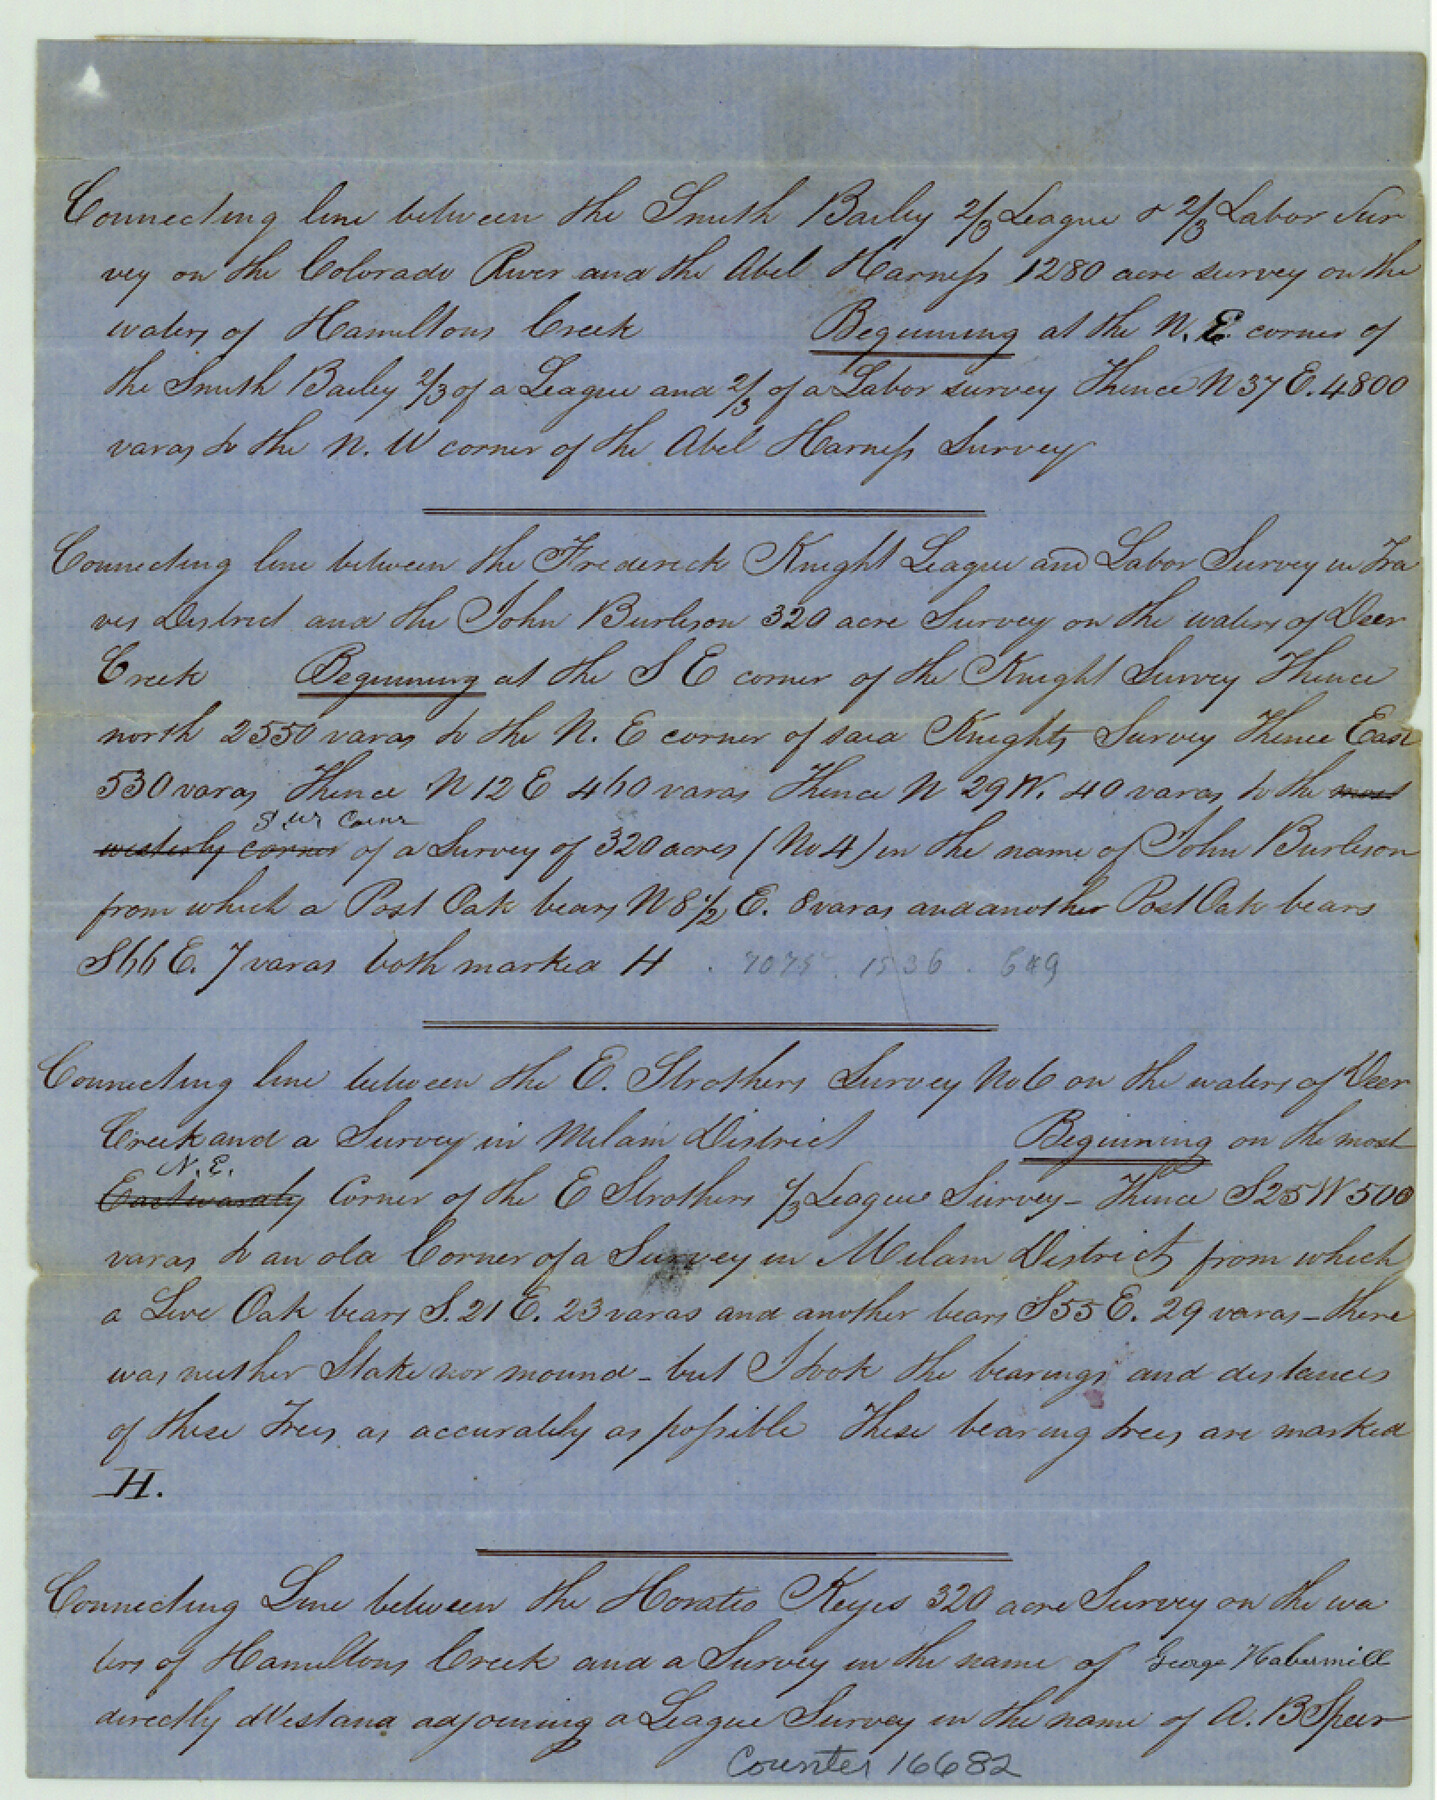 Connecting line between the Smith Bailey 2/3 League & 2/3 Labor Sur
vey on the Colorado River and the Abel Harness 1280 acre survey on the
waters of Hamiltons Creek Beginning at the N. E. corner of
the Smith Bailey 2/3 of a League and 2/3 of a Labor survey Thence N 37 E. 4800
varas to the N. W corner of the Abel Harness Survey
Connecting line between the Frederick Knight League and Labor Survey in Tra
vis District and the John Burleson 320 acre Survey on the waters of Deer
Creek Beginning at the S E corner of the Knight Survey Thence
north 2550 varas to the N. E corner of said Knights Survey Thence East
530 varas Thence N 12 E 460 varas Thence N 29 W. 40 varas to the most
S. W. Corner
westerly corner of a Survey of 320 acres (No 4) in the name of John Burleson
from which a Post Oak bears N 8 1/2 E. 8 varas and another Post Oak bears
S 66 E. 7 varas both marked H
Connecting line between the E. Strothers Survey No 6 on the waters of Deer
Creek and a Survey in Milam District Beginning on the most
N. E.
Eastwardly Corner of the E Strothers 1/3 League Survey - Thence S 25 W 500
varas to an old Corner of a Survey in Milam District from which
a Live Oak bears S. 21 E. 23 varas and another bears S 55 E. 29 varas - there
was neither Stake nor mound - but I took the bearings and distances
of these Trees as accurately as possible These bearing trees are marked
H.
Connecting Line between the Horatio Keyes 320 acre Survey on the wa
ters of Hamiltons Creek and a Survey in the name of George Habermill
directly West and adjoining a League Survey in the name of A. B Speer
Counter 16682